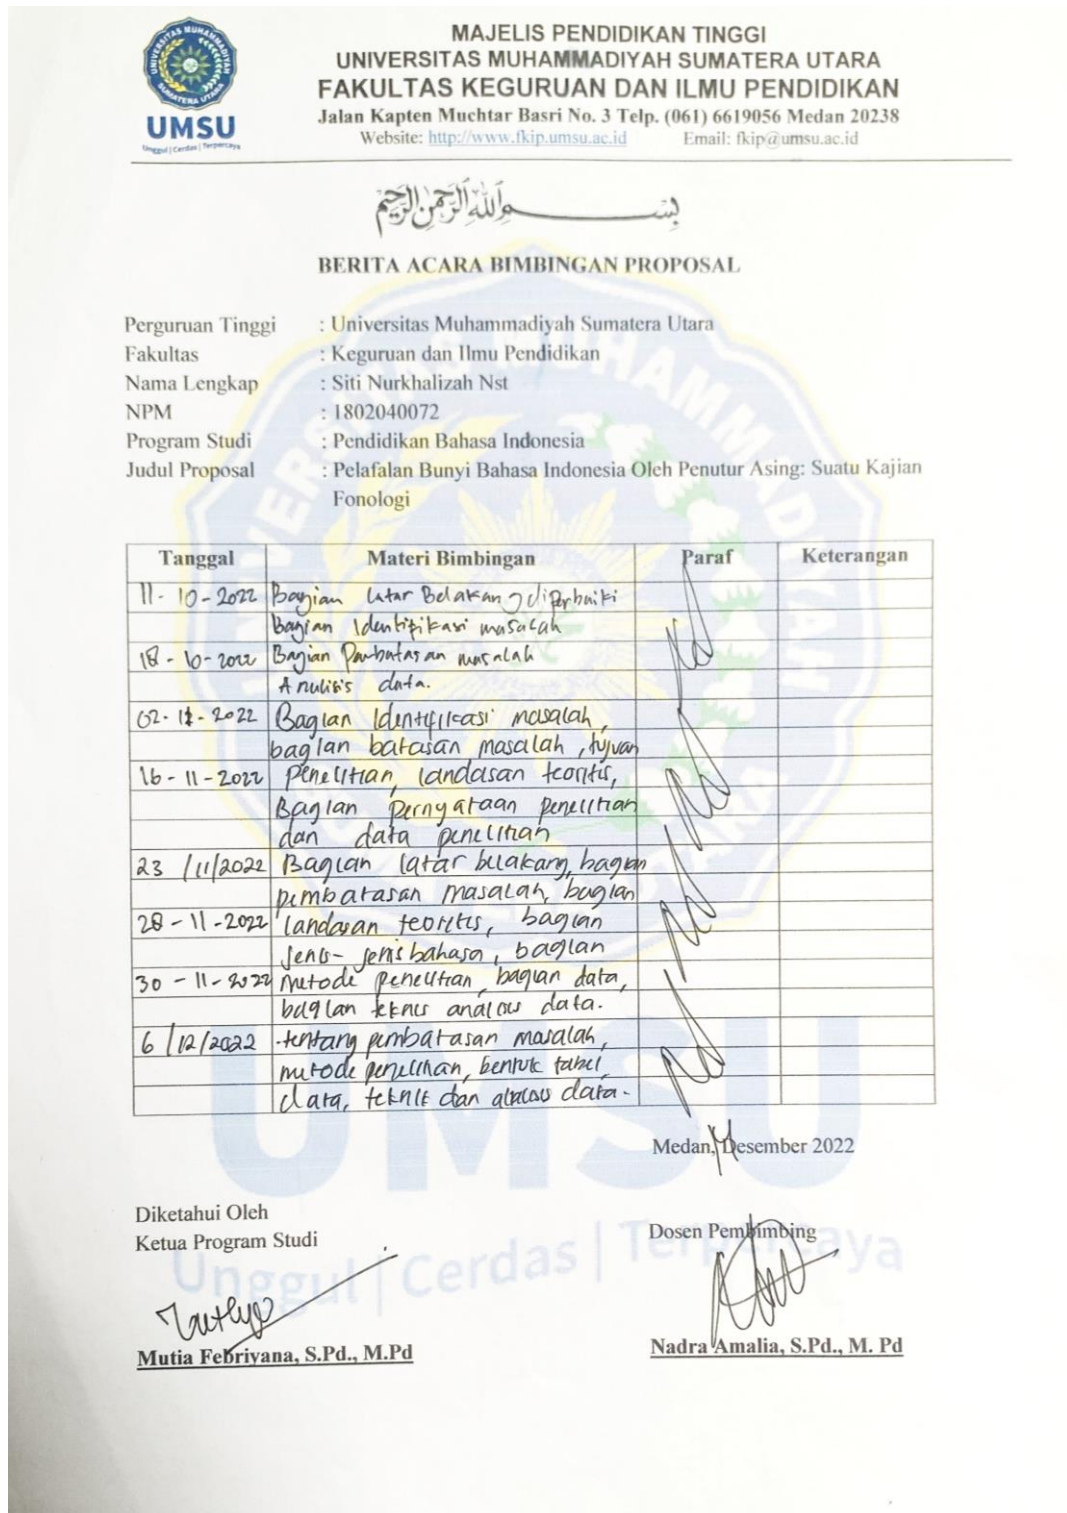 MAJELIS PENDIDIKAN TINGGI
UNIVERSITAS MUHAMMADIYAH SUMATERA UTARA
FAKULTAS KEGURUAN DAN ILMU PENDIDIKAN
Jalan Kapten Muchtar Basri No. 3 Telp. (061) 6619056 Medan 20238
Website: http://www.fkip.umsu.ac.id Email: fkip@umsu.ac.id
UNIVERSITAS MUHAMMADIYAH SUMATERA UTARA
UMSU
Unggul | Cerdas | Terpercaya
بِسْــــــــمِ اللهِ الرَّحْمٰنِ الرَّحِيْمِ
BERITA ACARA BIMBINGAN PROPOSAL
Perguruan Tinggi : Universitas Muhammadiyah Sumatera Utara
Fakultas : Keguruan dan Ilmu Pendidikan
Nama Lengkap : Siti Nurkhalizah Nst
NPM : 1802040072
Program Studi : Pendidikan Bahasa Indonesia
Judul Proposal : Pelafalan Bunyi Bahasa Indonesia Oleh Penutur Asing: Suatu Kajian
Fonologi
Tanggal Materi Bimbingan Paraf Keterangan
11-10-2022 Bagian Latar Belakang diperbaiki
Bagian Identifikasi masalah
18-10-2022 Bagian Pembatasan masalah
Analisis data.
02-11-2022 Bagian Identifikasi masalah,
bagian batasan masalah, tujuan
16-11-2022 penelitian, landasan teoritis,
Bagian Pernyataan penelitian
dan data penelitian
23/11/2022 Bagian latar belakang, bagian
pembatasan masalah, bagian
28-11-2022 landasan teoritis, bagian
Jenis-jenis bahasa, bagian
30-11-2022 metode penelitian, bagian data,
bagian teknis analisis data.
6/12/2022 -tentang pembatasan masalah,
metode penelitian, bentuk tabel,
data, teknik dan data.
Medan, Desember 2022
Diketahui Oleh
Ketua Program Studi
Dosen Pembimbing
Mutia Febriyana, S.Pd., M.Pd
Nadra Amalia, S.Pd., M. Pd
UNIVERSITAS MUHAMMADIYAH
UMSU
Unggul | Cerdas | Terpercaya